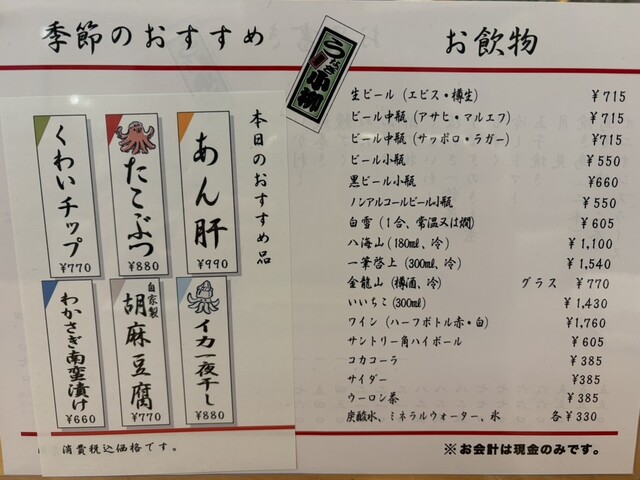 季節のおすすめ
本日のおすすめ品
あん肝
¥990
たこぶつ
¥880
くわいチップ
¥770
イカ一夜干し
¥880
自家製
胡麻豆腐
¥770
わかさぎ南蛮漬け
¥660
消費税込価格です。
うなぎ
小柳
お飲物
生ビール (エビス・樽生) ¥715
ビール中瓶 (アサヒ・マルエフ) ¥715
ビール中瓶 (サッポロ・ラガー) ¥715
ビール小瓶 ¥550
黒ビール小瓶 ¥660
ノンアルコールビール小瓶 ¥550
白雪 (1合、常温又は燗) ¥605
八海山 (180㎖、冷) ¥1,100
一筆啓上 (300㎖、冷) ¥1,540
金龍山 (樽酒、冷) グラス ¥770
いいちこ (300㎖) ¥1,430
ワイン (ハーフボトル赤・白) ¥1,760
サントリー角ハイボール ¥605
コカコーラ ¥385
サイダー ¥385
ウーロン茶 ¥385
炭酸水、ミネラルウォーター、氷 各¥330
※お会計は現金のみです。